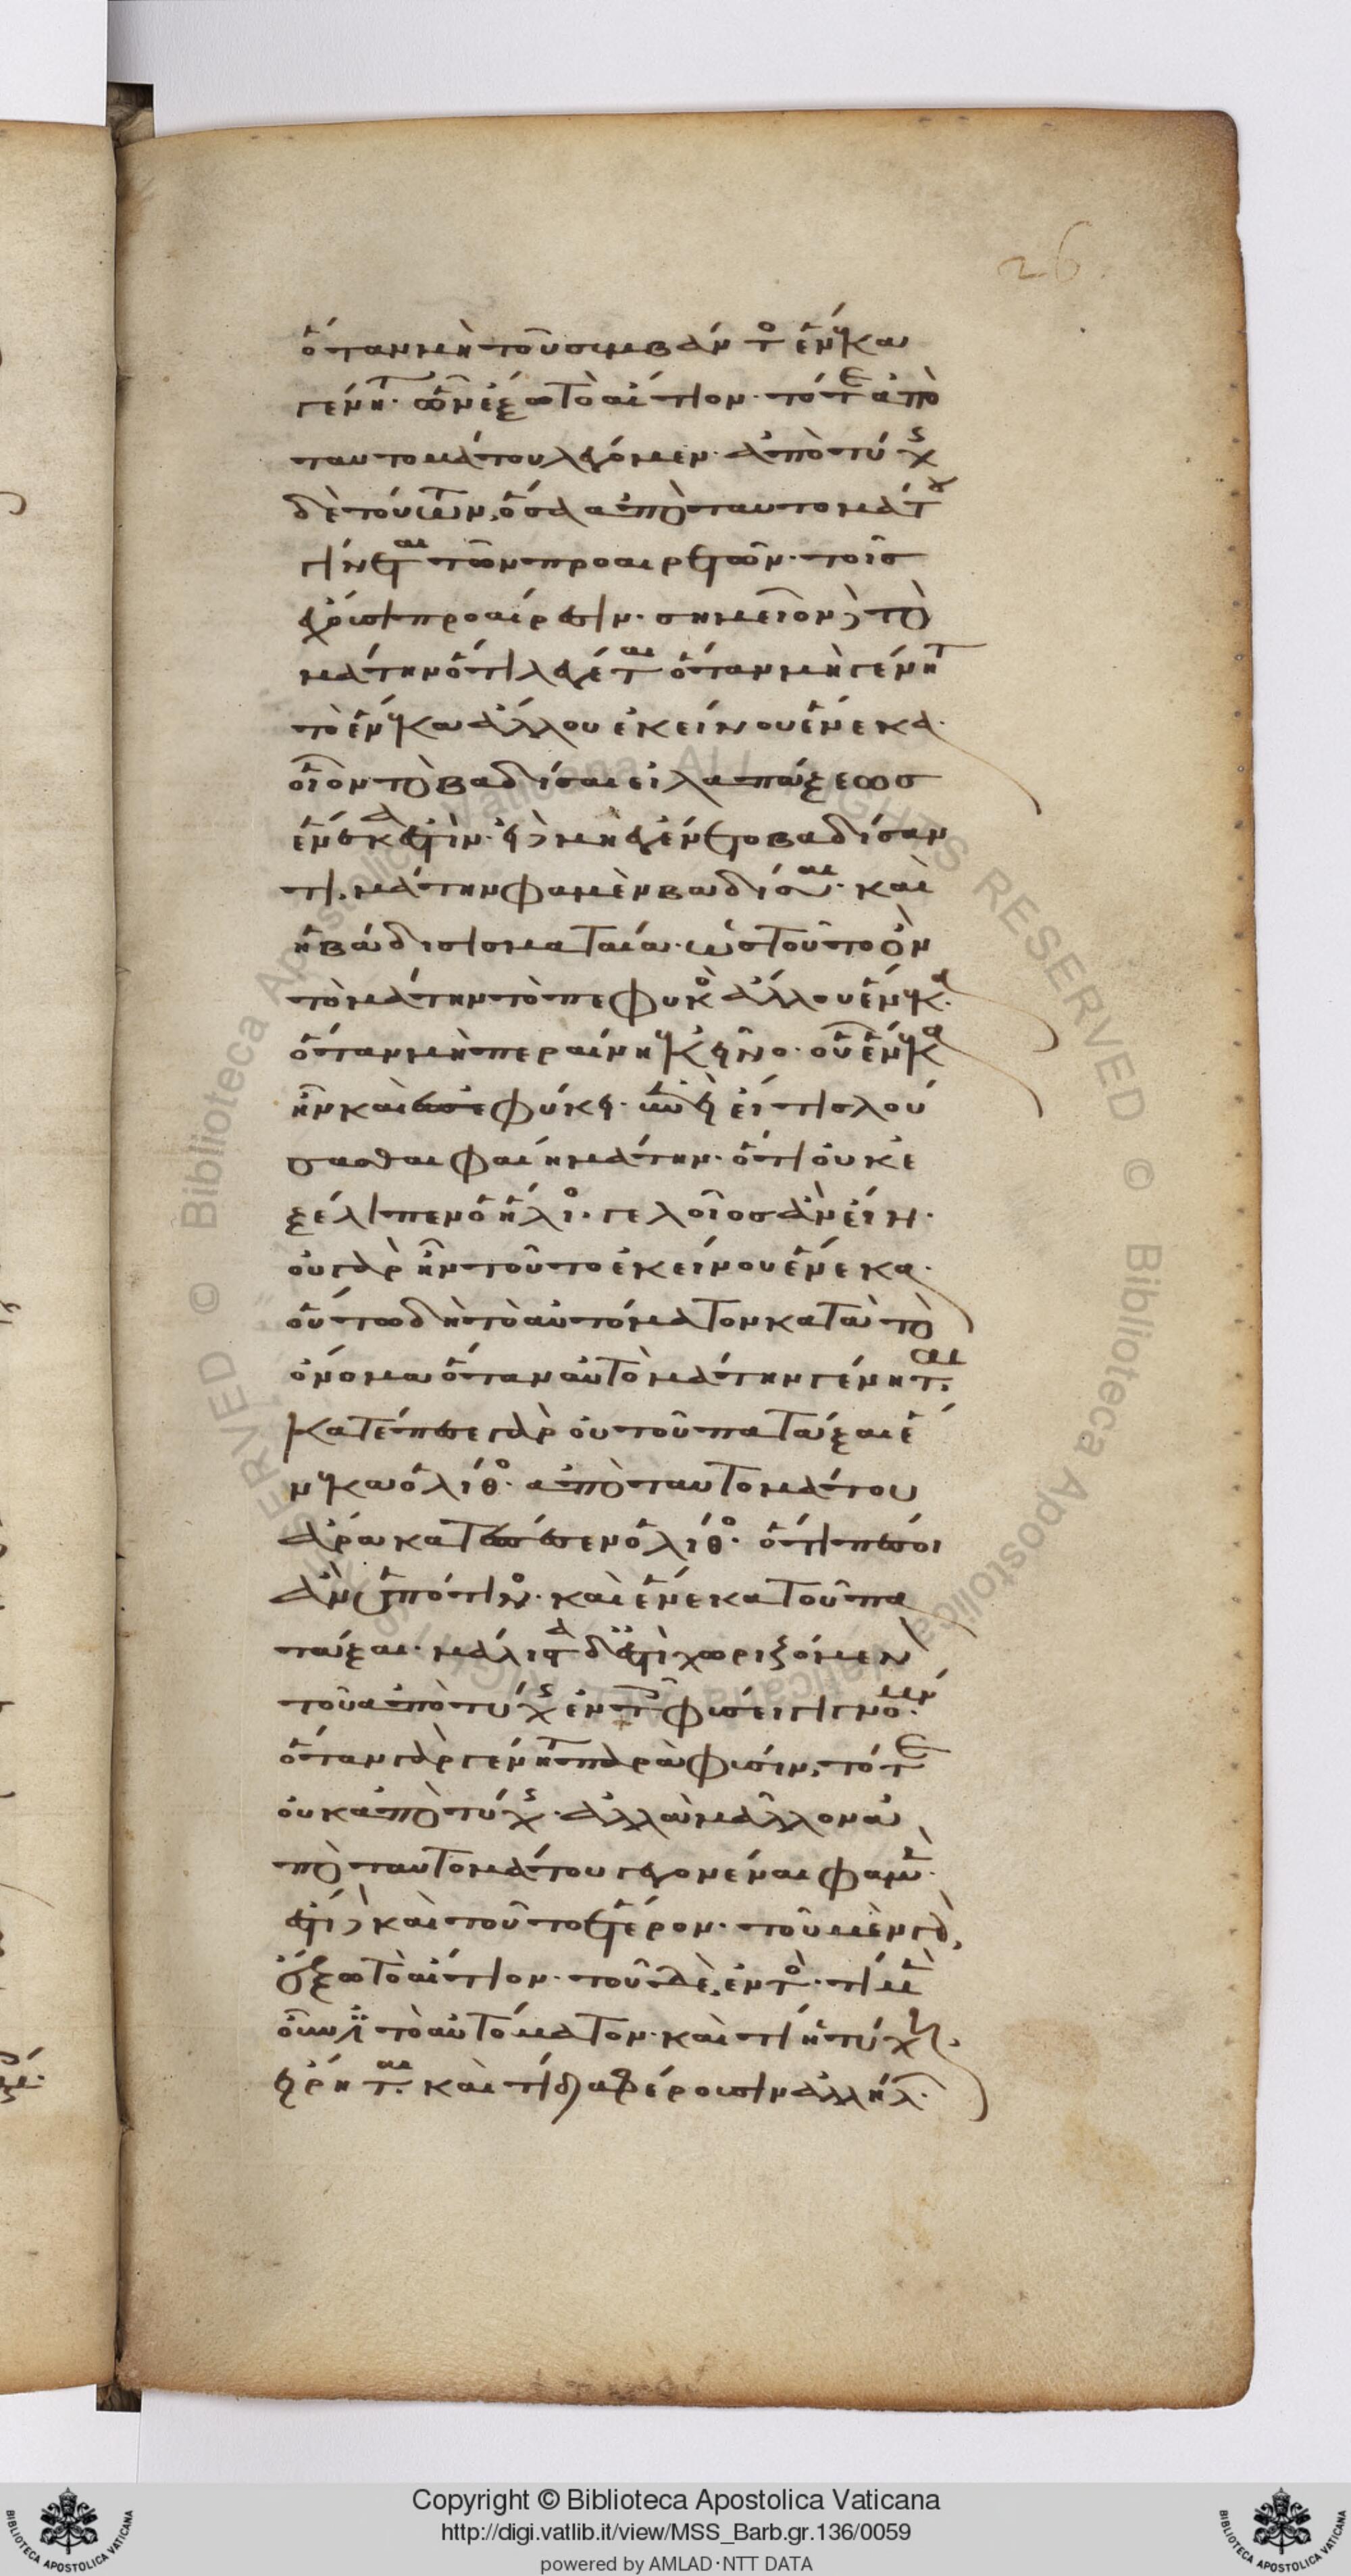 26.
ὅταν μὴ τοῦ συμβάντο(ς) ἕνεκα
γένητ(αι) ὧν ἔξω τὸ αἴτιον· τότε ἀπὸ
ταυτομάτου λέγομεν· ἀπὸ τύχ(ης)
δὲ τούτων, ὅσα ἀπὸ ταυτομάτου
γίνεται τῶν προαιρετῶν· τοῖς
ἔχουσι προαίρεσιν· σημεῖον δὲ τὸ
μάτην ὅτι λέγεται ὅταν μὴ γένητ(αι)
τὸ ἕνεκα ἄλλου ἐκείνου ἕνεκα·
οἷον τὸ βαδίσαι εἰ λαπάξεως
ἕνεκά ἐστιν· εἰ δὲ μὴ ἐγένετο βαδίσαν
τι, μάτην φαμὲν βαδίσαι· καὶ
ἡ βάδισις ματαία· ὡς τοῦτο ὂν
τὸ μάτην τὸ πεφυκὸ(ς) ἄλλου ἕνεκα·
ὅταν μὴ περαίνῃ ἐκεῖνο· οὗ ἕνεκα
ἦν καὶ ἐπεφύκει· ἐπεὶ εἴ τις λού
σασθαι φαίη μάτην· ὅτι οὐκ ἐ
ξέλιπεν ὁ ἥλιο(ς)· γελοῖος ἂν εἴη·
οὐ γὰρ ἦν τοῦτο ἐκείνου ἕνεκα·
οὕτω δὴ τὸ αὐτόματον κατὰ τὸ
ὄνομα ὅταν αὐτὸ μάτην γένηται·
κατέπεσε γὰρ οὐ τοῦ πατάξαι ἕ
νεκα ὁ λίθο(ς)· ἀπὸ ταυτομάτου
ἄρα κατέπεσεν ὁ λίθο(ς)· ὅτι πέσοι
ἂν ὑπό τινο(ς)· καὶ ἕνεκα τοῦ πα
τάξαι· μάλιστα δ' ἐστὶ χωριζόμεν(ον)
τοῦ ἀπὸ τύχ(ης) ἐν τοῖς φύσει γιγνομέν(οις)·
ὅταν γὰρ γένητ(αι) παρὰ φύσιν, τότε
οὐκ ἀπὸ τύχ(ης)· ἀλλὰ μᾶλλον ἀ
πὸ ταυτομάτου γεγονέναι φαμέν·
ἔστι δὲ καὶ τοῦτο ἕτερον· τοῦ μὲν γὰρ,
ἔξω τὸ αἴτιον· τοῦ δὲ, ἐντό(ς)· τί μὲν
οὖν ἐστὶ τὸ αὐτόματον· καὶ τί ἡ τύχη·
εἴρηται· καὶ τί διαφέρουσιν ἀλλήλ(ων)·
Copyright © Biblioteca Apostolica Vaticana
http://digi.vatlib.it/view/MSS_Barb.gr.136/0059
powered by AMLAD·NTT DATA